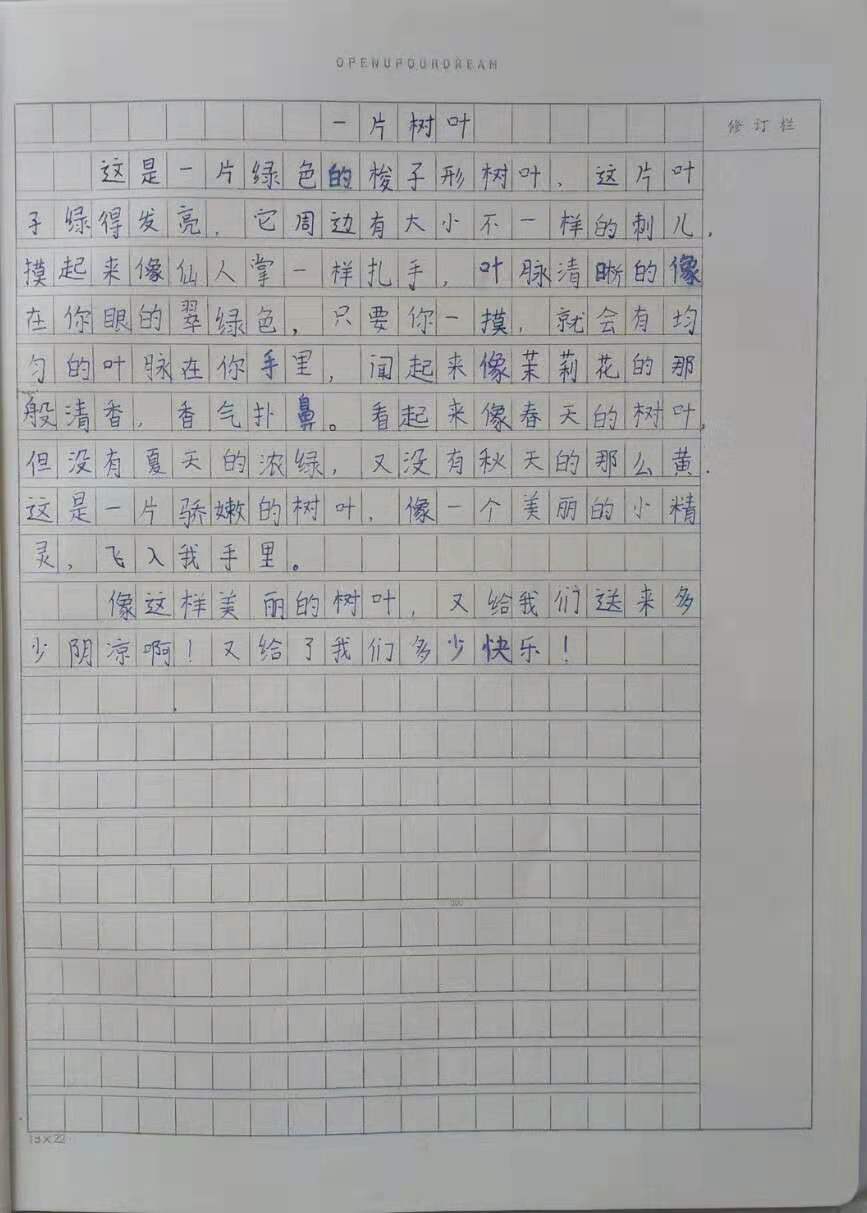 OPENUPOURDREAM
一片树叶
修订栏
这是一片绿色的梭子形树叶，这片叶
子绿得发亮，它周边有大小不一样的刺儿，
摸起来像仙人掌一样扎手，叶脉清晰的像
在你眼的翠绿色，只要你一摸，就会有均
匀的叶脉在你手里，闻起来像茉莉花的那
般清香，香气扑鼻。看起来像春天的树叶，
但没有夏天的浓绿，又没有秋天的那么黄．
这是一片骄嫩的树叶，像一个美丽的小精
灵，飞入我手里。
像这样美丽的树叶，又给我们送来多
少阴凉啊！又给了我们多少快乐！
300
18×22